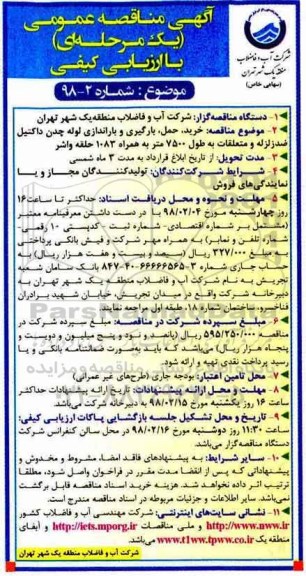 آگهی مناقصه عمومی
(یک مرحله‌ای)
با ارزیابی کیفی
شرکت آب و فاضلاب
منطقه یک شهر تهران
(سهامی خاص)
موضوع: شماره ۲-۹۸
۱- دستگاه مناقصه‌گزار: شرکت آب و فاضلاب منطقه‌یک شهر تهران
۲- موضوع مناقصه: خرید، حمل، بارگیری و باراندازی لوله چدن داکتیل
ضدزلزله و متعلقات به طول ۷۵۰۰ متر به همراه ۱۰۸۳ حلقه واشر
۳- مدت تحویل: از تاریخ ابلاغ قرارداد به مدت ۳ ماه شمسی
۴- شرایط شرکت‌کنندگان: تولیدکنندگان مجاز و یا
نمایندگی‌های فروش
۵- مهلت و نحوه و محل دریافت اسناد: حداکثر تا ساعت ۱۶
روز چهارشنبه مورخ ۹۸/۰۲/۰۴ با در دست داشتن معرفینامه معتبر
(مشتمل بر شماره اقتصادی- شماره ثبت - کدپستی ۱۰ رقمی-
شماره تلفن و نمابر) به همراه مهر شرکت و فیش بانکی پرداختی
مبلغ ۳۲۷/۰۰۰ ریال (سیصد و بیست و هفت هزار ریال) به
حساب جاری شماره ۳-۶۶۶۶۶۵۶۵-۴۰-۸۴۷ بانک سامان شعبه
تجریش به نام شرکت آب و فاضلاب منطقه یک شهر تهران به
دبیرخانه شرکت واقع در میدان تجریش، خیابان شهید برادران
فناخسرو، ساختمان شماره ۱، طبقه اول مراجعه نمایند.
۶- مبلغ سپرده شرکت در مناقصه: مبلغ سپرده شرکت در
مناقصه ۵۹۵/۲۵۰/۰۰۰ ریال (پانصد و نود و پنج میلیون و دویست و
پنجاه هزار ریال) می‌باشد که باید بصورت ضمانتنامه بانکی و یا
رسید پرداخت نقدی تهیه و ارائه شود.
۷- محل تامین اعتبار: بودجه جاری (طرح‌های غیر عمرانی)
۸- مهلت و محل ارائه پیشنهادات: تاریخ ارائه پیشنهادات حداکثر
ساعت ۱۶ روز یکشنبه مورخ ۹۸/۰۲/۱۵ به دبیرخانه شرکت می‌باشد.
۹- تاریخ و محل تشکیل جلسه بازگشایی پاکات ارزیابی کیفی:
ساعت ۱۱:۳۰ روز دوشنبه مورخ ۹۸/۰۲/۱۶ در محل سالن کنفرانس شرکت
دستگاه مناقصه‌گزار می‌باشد.
۱۰- سایر شرایط: به پیشنهادهای فاقد امضا، مشروط و مخدوش و
پیشنهاداتی که پس از انقضا مدت مقرر در فراخوان واصل شود، مطلقا
ترتیب اثر داده نخواهد شد. هزینه خرید اسناد مناقصه قابل برگشت
نمی‌باشد. سایر اطلاعات و جزئیات مربوطه در اسناد مناقصه مندرج است.
۱۱- نشانی سایت‌های اینترنتی: شرکت مهندسی آب و فاضلاب کشور
http://www.nww.ir و ملی مناقصات http://iets.mporg.ir و آبفای
منطقه یک www.t1ww.tpww.co.ir می‌باشد.
شرکت آب و فاضلاب منطقه یک شهر تهران